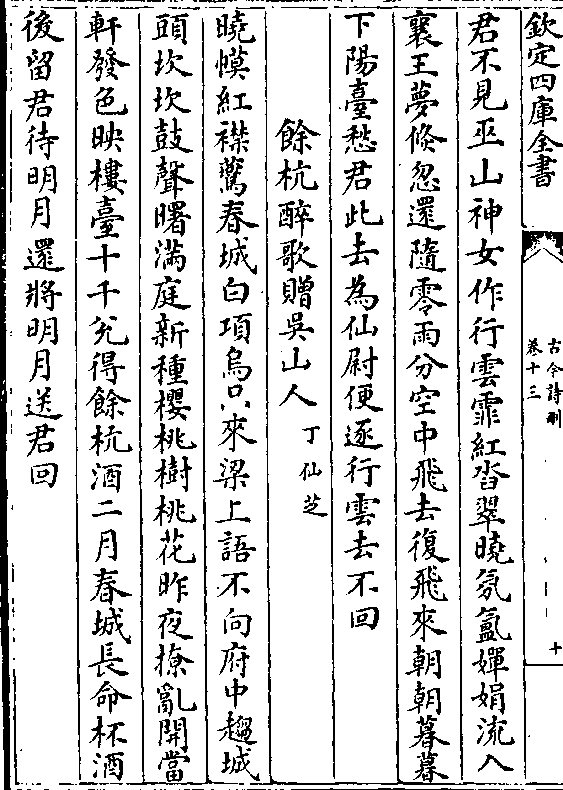 欽定四庫全書
古今詩刪
卷十三
十
君不見巫山神女作行雲霏紅沓翠曉氛氳嬋娟流入
襄王夢倐忽還隨零雨分空中飛去復飛來朝朝暮暮
下陽臺愁君此去為仙尉便逐行雲去不回
餘杭醉歌贈吳山人
丁仙芝
曉幙紅襟鷰春城白項烏只來梁上語不向府中趨城
頭坎坎鼓聲曙滿庭新種櫻桃樹桃花昨夜撩亂開當
軒發色映樓臺十千兊得餘杭酒二月春城長命杯酒
後留君待明月還將明月送君回